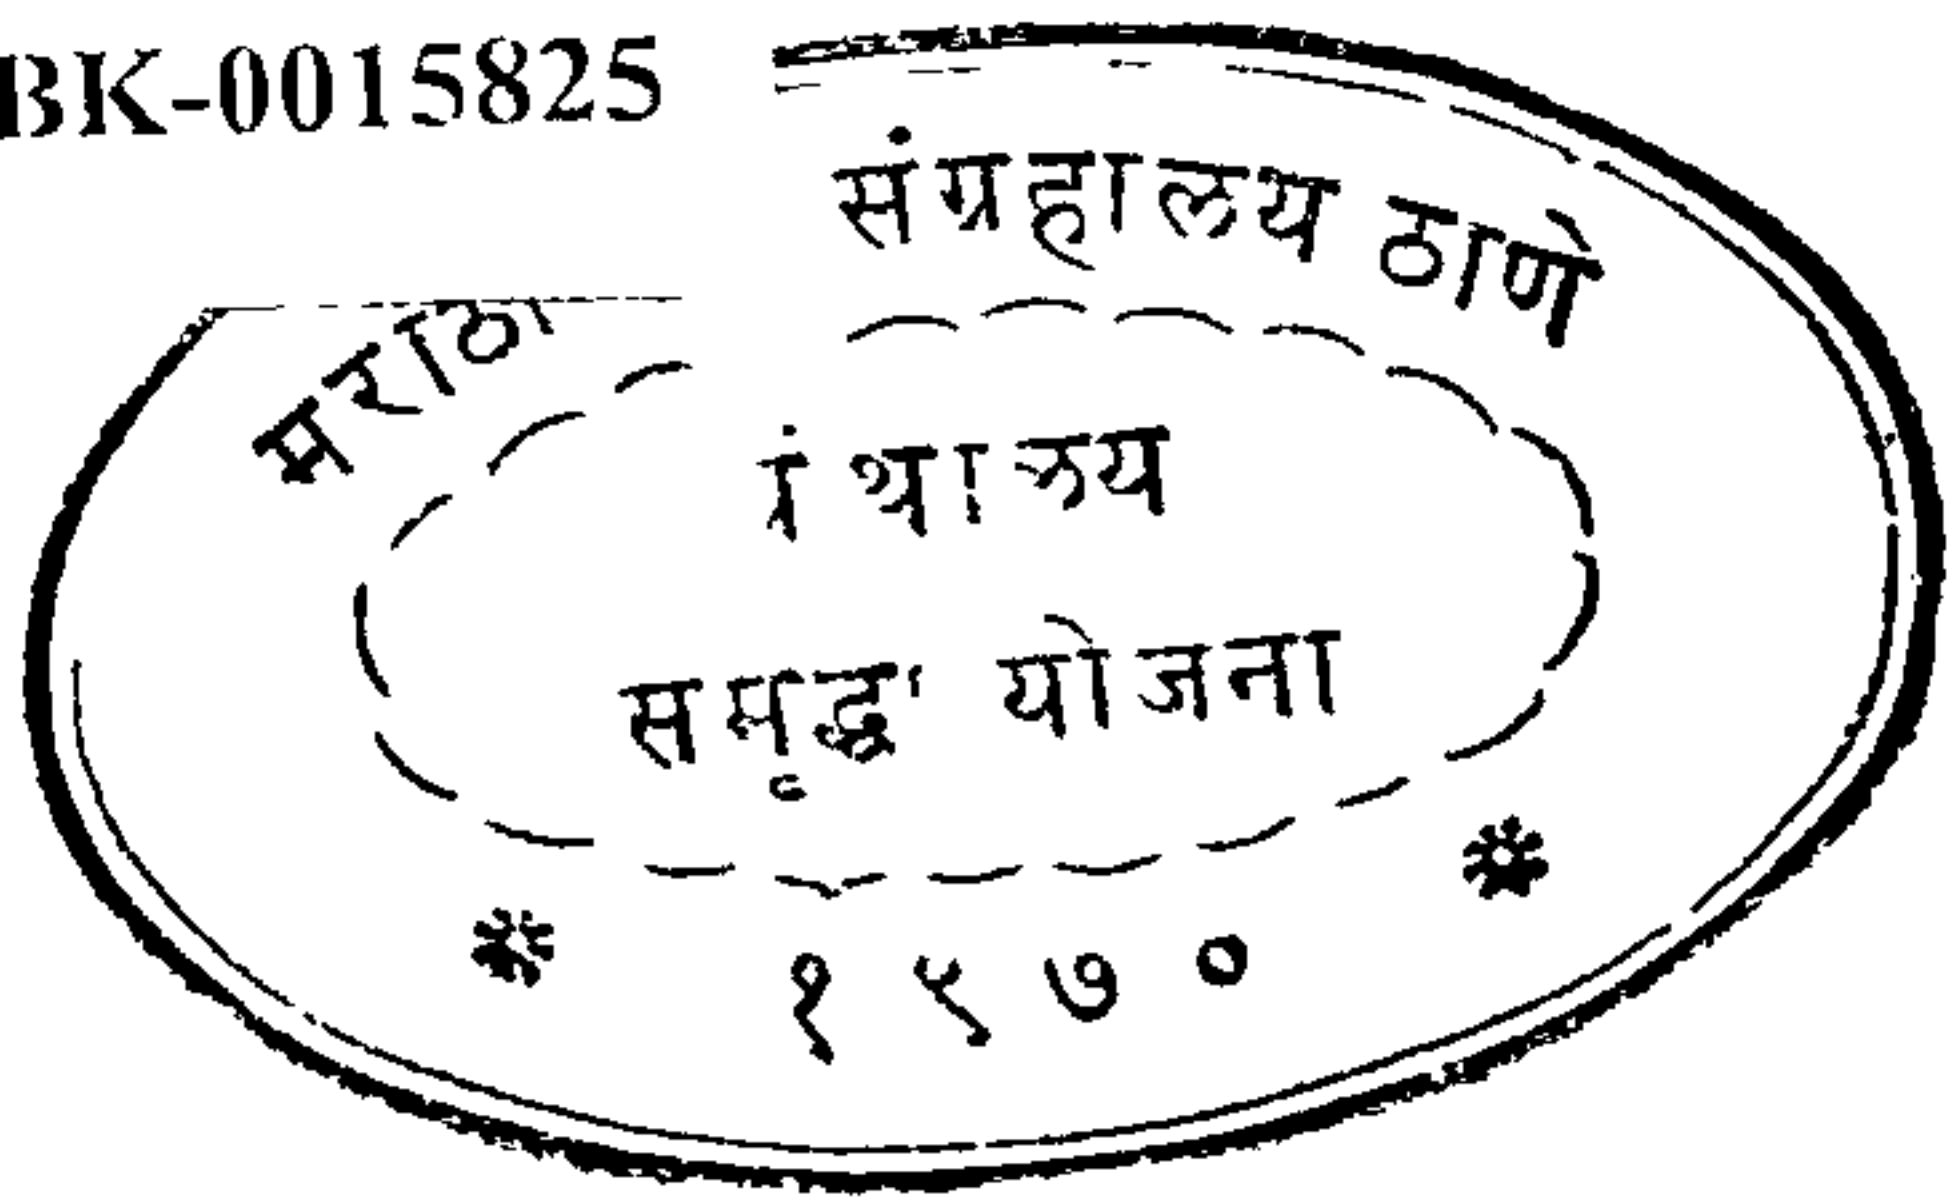 BK-0015825
मराठी संग्रहालय ठाणे
ग्रंथालय
समृद्ध योजना
१९७०